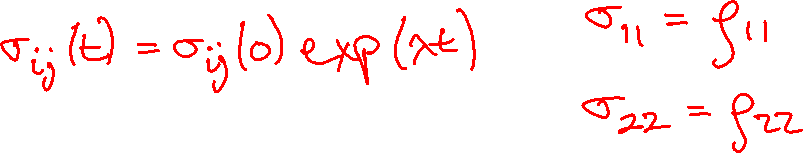 σ_{ij}(t) = σ_{ij}(0) exp(λt)
σ_{11} = ρ_{11}
σ_{22} = ρ_{22}